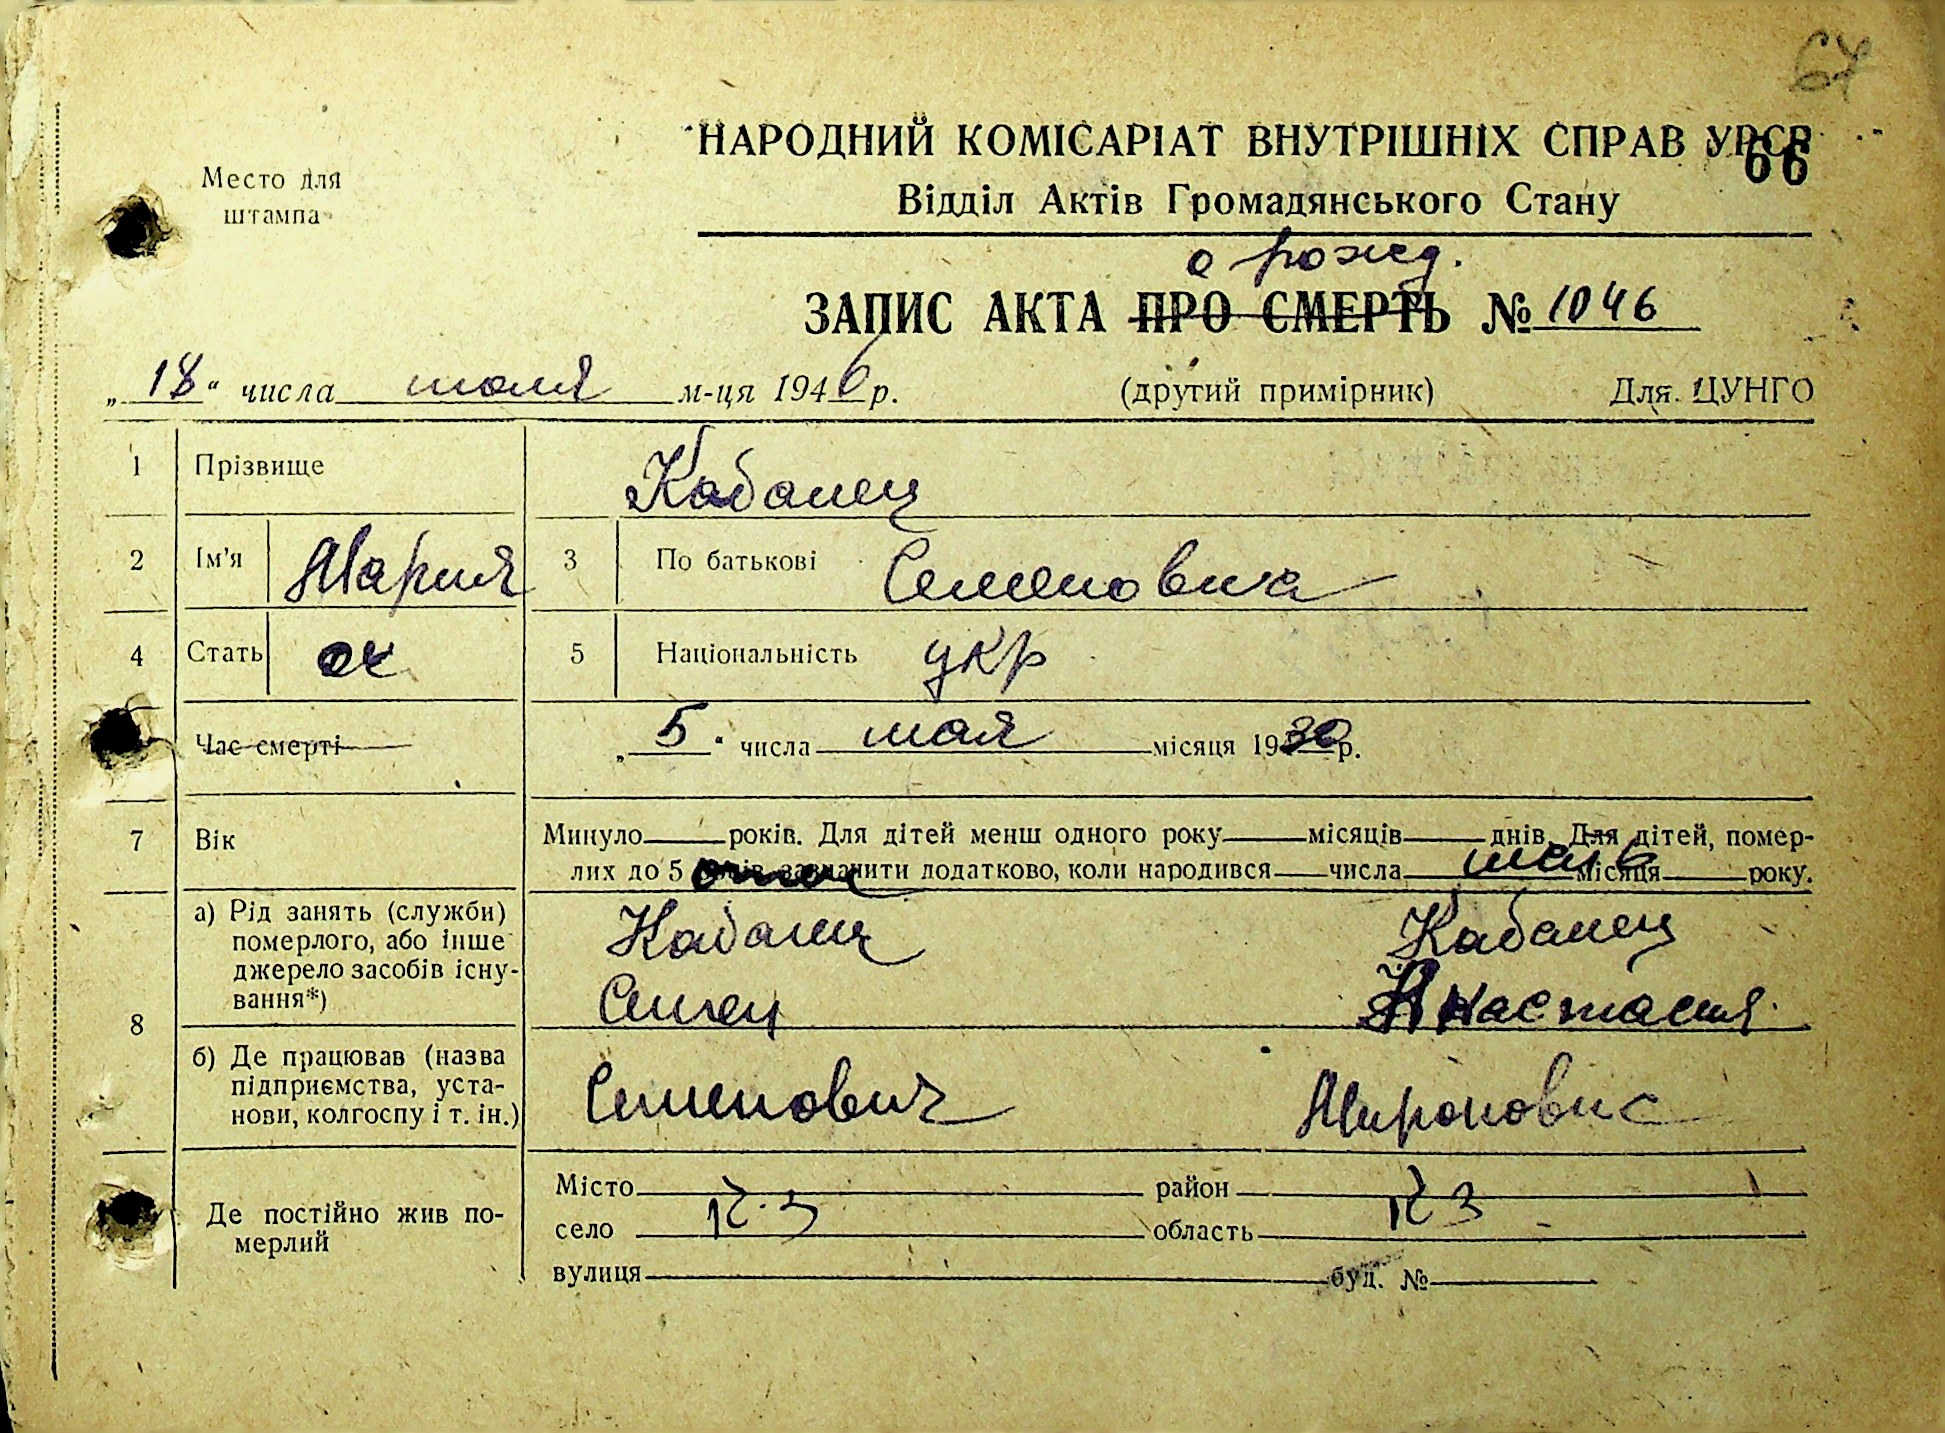 67
НАРОДНИЙ КОМІСАРІАТ ВНУТРІШНІХ СПРАВ УРСР
66
Место для
штампа
Відділ Актів Громадянського Стану
о рожд.
ЗАПИС АКТА ПРО СМЕРТЬ № 1046
„ 18 “ числа июля м-ця 1946 р. (другий примірник) Для ЦУНГО
1 Прізвище Кабанец
2 Ім'я Мария 3 По батькові Семеновна
4 Стать 5 Національність укр
Час смерті „ 5 “ числа мая місяця 1930 р.
7 Вік Минуло років. Для дітей менш одного року місяців днів. Для дітей, помер-
лих до 5 років зазначити додатково, коли народився числа місяця року.
отец мать
8 а) Рід занять (служби)
померлого, або інше
джерело засобів існу-
вання*)
Кабанец Кабанец
Семен Анастасия
б) Де працював (назва
підприємства, уста-
нови, колгоспу і т. ін.)
Семенович Мироновна
Де постійно жив по-
мерлий
Місто район
село область
вулиця буд. №